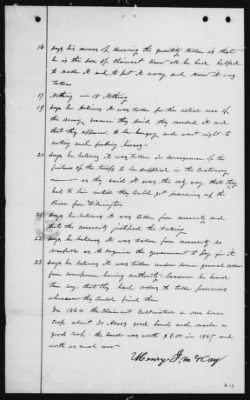 16 Says his means of knowing the quantity taken is that
he is the son of Claimant knew all he had helped
to make it and to put it away and knew it was
taken
17 Nothing — 18 Nothing
19 Says he believes it was taken for the actual use of
the army because they said they needed it and
that they appeared to be hungry and went right to
eating and feeding horses —
20 Says he believes it was taken in consequence of the
failure of the troops to be supplied in the customary
manner as they said it was the only way that they
had to live until they could get provisions up the
River from Wilmington
21 Says he believes it was taken from necessity and
that the necessity justified the taking
22 Says he believes it was taken from necessity so
as to require the government to pay for it
23 Says he believes it was taken under some general order
from someone having authority because he heard
them say that they had orders to take provisions
wherever they could find them
In 1864 the Claimant cultivated a
crop about 30 Acres good land and made a
good crop. the land was worth $8.00 in 1865 and
worth as much now
Henry J. McKay